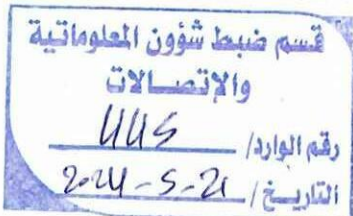 قسم ضبط شؤون المعلوماتية
والإتصالات
رقم الوارد/
التاريخ / 2024-5-21